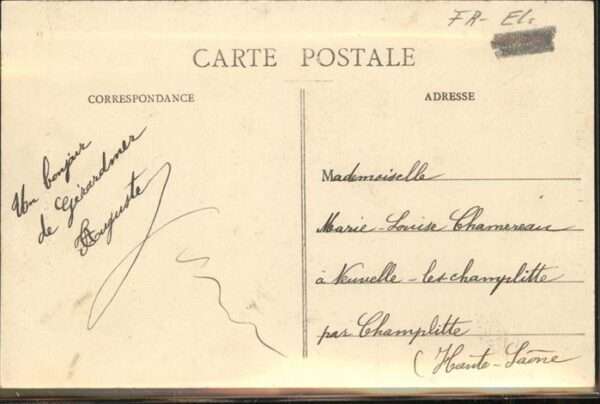 FR- El.
CARTE POSTALE
CORRESPONDANCE
ADRESSE
Un bonjour
de Gérardmer
Auguste
Mademoiselle
Marie-Louise Chamereau
à Neuvelle-les-champlitte
par Champlitte
(Haute-Saône